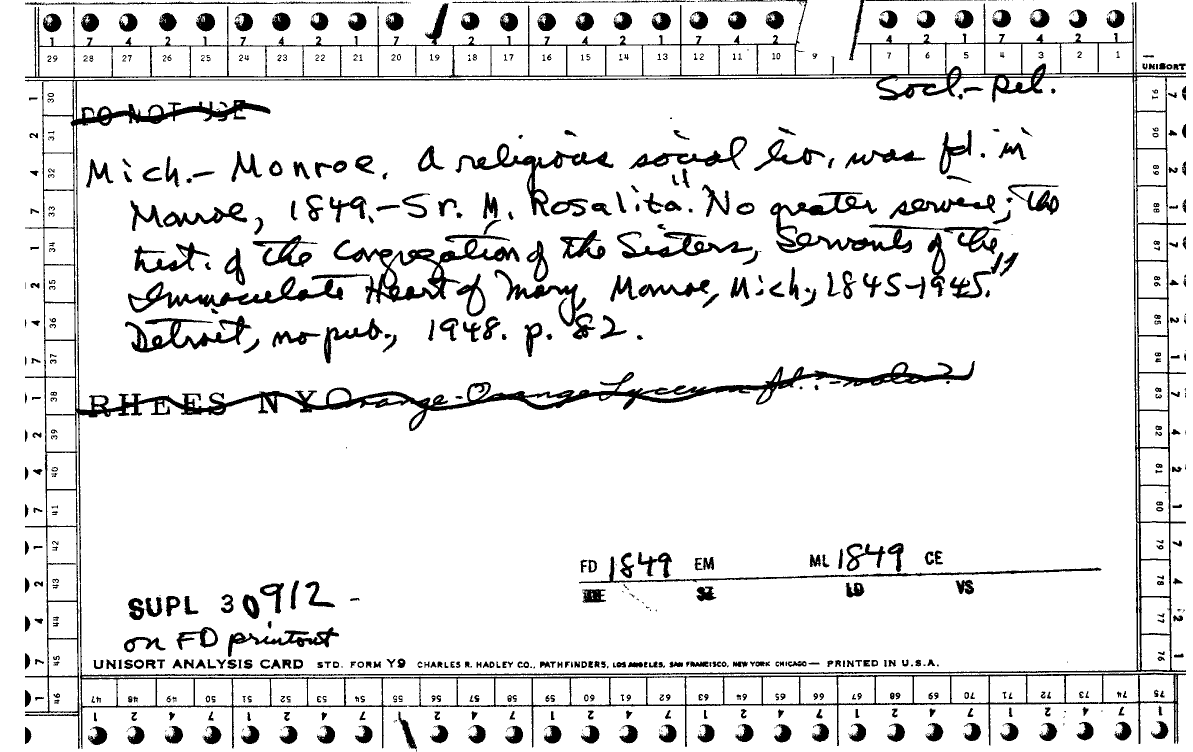 7 4 2 1 7 4 2 1 7 4 2 1 7 4 2 1 7 4 2 4 2 1 7 4 2 1
29 28 27 26 25 24 23 22 21 20 19 18 17 16 15 14 13 12 11 10 9 8 7 6 5 4 3 2 1
UNISORT
Socl.- Rel.
DO NOT USE
Mich.- Monroe. A religious social lib, was fd. in
Monroe, 1849.-Sr. M. Rosalita. "No greater service; the
hist. of the Congregation of the Sisters, Servants of the
Immaculate Heart of Mary, Monroe, Mich., 1845-1945."
Detroit, no pub., 1948. p. 82.
RHEES NY Orange-Orange Lyceum fd.
FD 1849 EM ML 1849 CE
SZ LD VS
SUPL 30912 -
on FD printout
UNISORT ANALYSIS CARD STD. FORM Y9 CHARLES R. HADLEY CO., PATHFINDERS, LOS ANGELES, SAN FRANCISCO, NEW YORK CHICAGO — PRINTED IN U.S.A.
47 48 49 50 51 52 53 54 55 56 57 58 59 60 61 62 63 64 65 66 67 68 69 70 71 72 73 74 75